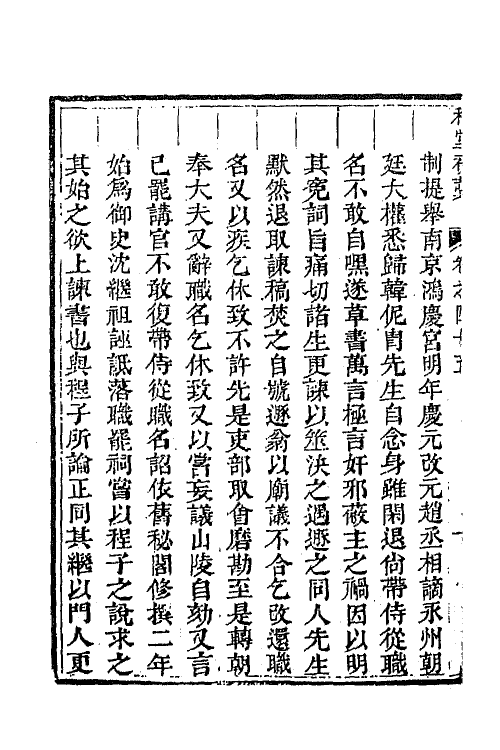 制提舉南京鴻慶宮明年慶元改元趙丞相謫永州朝
廷大權悉歸韓侂胄先生自念身雖閑退尚帶侍從職
名不敢自嘿遂草書萬言極言奸邪蔽主之禍因以明
其冤詞旨痛切諸生更諫以筮決之遇遯之同人先生
默然退取諫稿焚之自號遯翁以廟議不合乞改還職
名又以疾乞休致不許先是吏部取會磨勘至是轉朝
奉大夫又辭職名乞休致又以嘗妄議山陵自劾又言
已罷講官不敢復帶侍從職名詔依舊秘閣修撰二年
始爲御史沈繼祖誣詆落職罷祠嘗以程子之說求之
其始之欲上諫書也與程子所論正同其繼以門人更